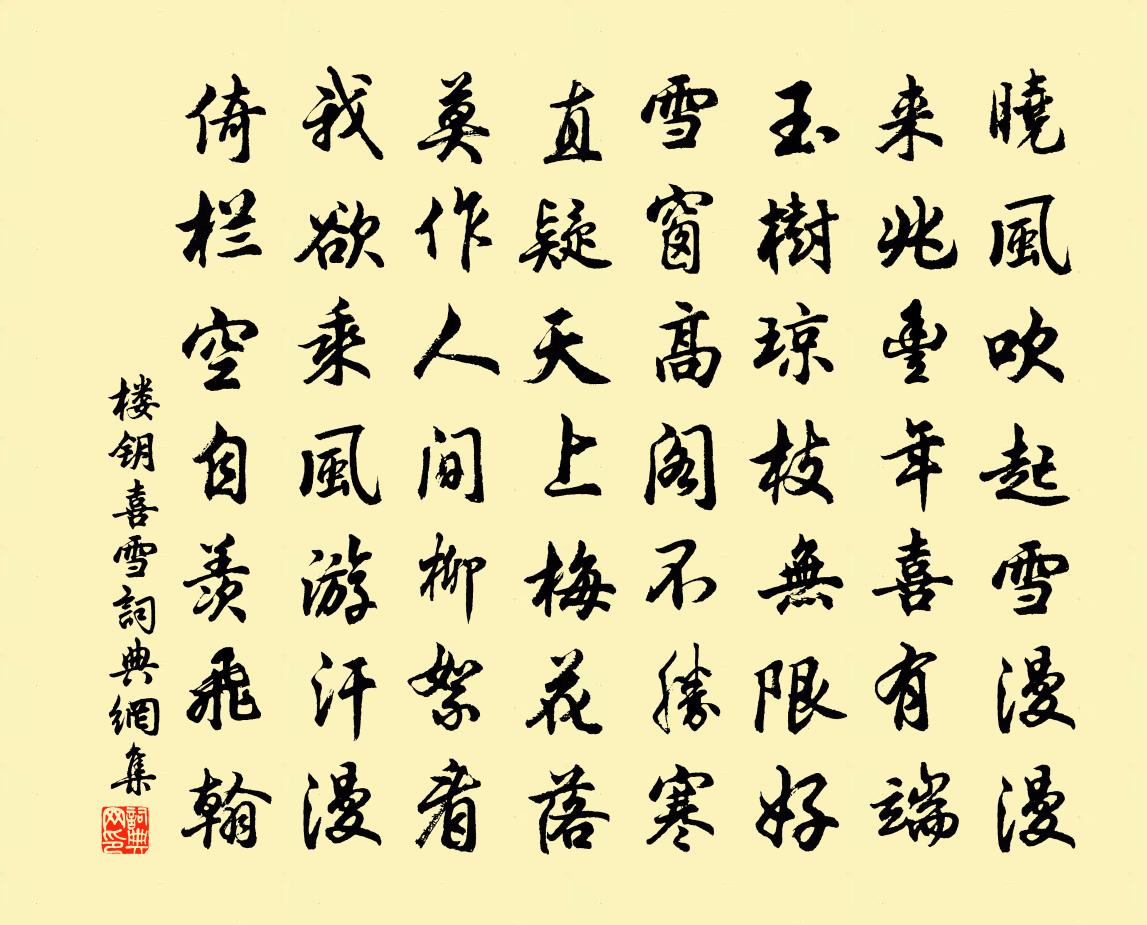 曉風吹起雪漫漫
来兆豊年喜有端
玉樹琼枝無限好
雪窗高阁不勝寒
直疑天上梅花落
莫作人间柳絮看
我欲乘風游汗漫
倚栏空自羡飛翰
楼钥喜雪詞典網集
詞典网印